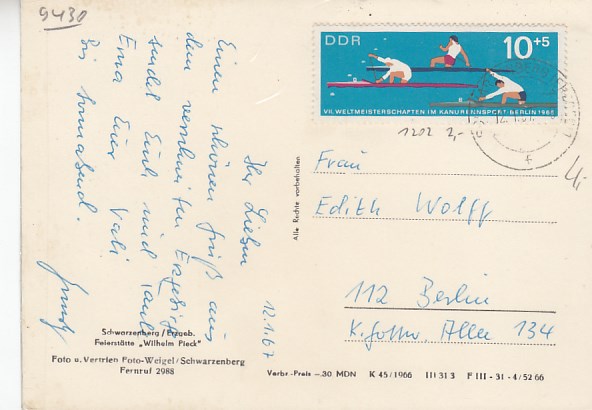 9430
DDR
10+5
VII. WELTMEISTERSCHAFTEN IM KANURENNSPORT BERLIN 1966
1202 2,-
4,-
12.1.67
Ihr Lieben
Einen schönen Gruß aus
dem verschneiten Erzgebirg
sendet Euch und
Euer Vati
Bis Sonnabend.
Frau
Edith Wolff
112 Berlin
Allee 134
Alle Rechte vorbehalten
Schwarzenberg/Erzgeb.
Feierstätte „Wilhelm Pieck"
Foto u. Vertrieb Foto-Weigel/Schwarzenberg
Fernruf 2988
Verbr.-Preis -.30 MDN K 45/1966 III 31 3 F III - 31 - 4/52 66